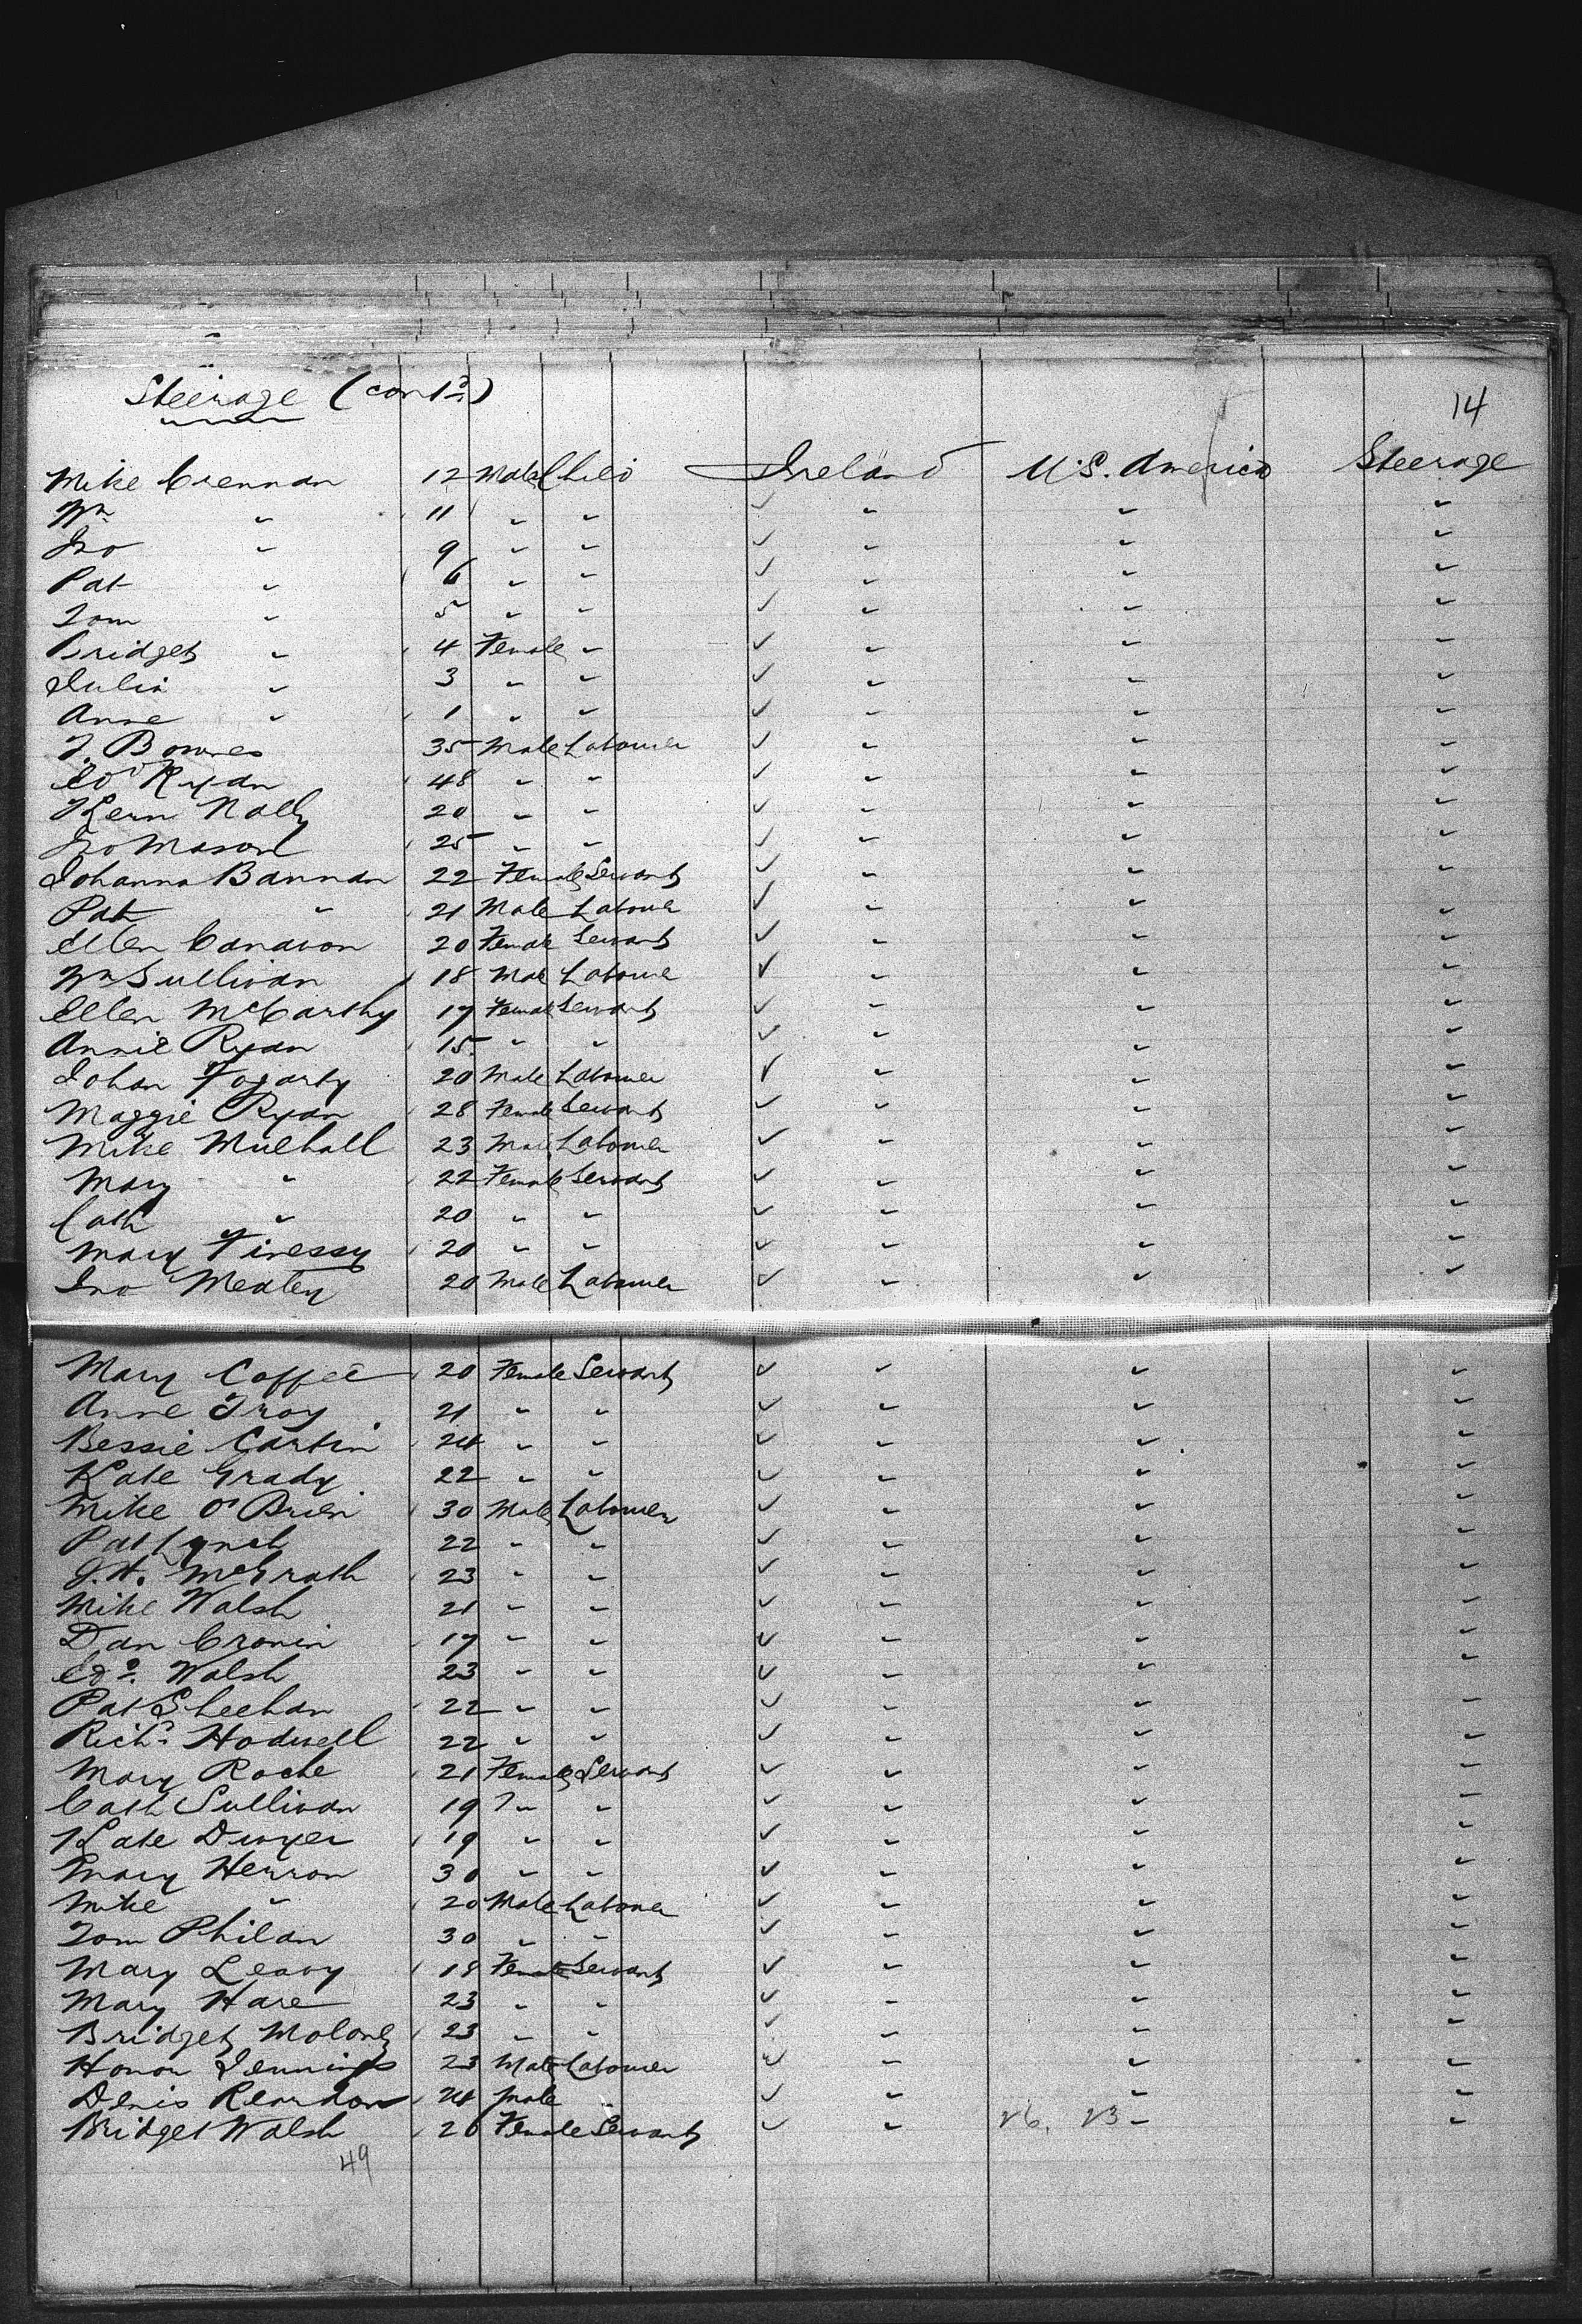 Steerage (contd)
14
Mike Brennan 12 Male Child Ireland U.S. America Steerage
Wm " 11 " " " " "
Jno " 9 " " " " "
Pat " 6 " " " " "
Tom " 5 " " " " "
Bridget " 4 Female " " " "
Julia " 3 " " " " "
Anne " 1 " " " " "
J. Bowres 35 Male Labourer " " "
Edd Ryan 48 " " " " "
Kern Nolly 20 " " " " "
Jno Mason 25 " " " " "
Johanna Bannan 22 Female Servant " " "
Pat " 21 Male Labourer " " "
Ellen Canavon 20 Female Servant " " "
Wm Sullivan 18 Male Labourer " " "
Ellen McCarthy 17 Female Servant " " "
Annie Ryan 15 " " " " "
Johan Fogarty 20 Male Labourer " " "
Maggie Ryan 28 Female Servant " " "
Mike Mulhall 23 Male Labourer " " "
Mary " 22 Female Servant " " "
Cath " 20 " " " " "
Mary Finessy 20 " " " " "
Jno Mealey 20 Male Labourer " " "
Mary Coffee 20 Female Servant " " "
Anne Troy 21 " " " " "
Bessie Cartin 24 " " " " "
Kate Grady 22 " " " " "
Mike O'Brien 30 Male Labourer " " "
Pat Lynch 22 " " " " "
J.H. McGrath 23 " " " " "
Mike Walsh 21 " " " " "
Dan Cronin 17 " " " " "
Edd. Walsh 23 " " " " "
Pat Sheehan 22 " " " " "
Richd Hodwell 22 " " " " "
Mary Roche 21 Female Servant " " "
Cath Sullivan 19 " " " " "
Kate Dwyer 19 " " " " "
Mary Herron 30 " " " " "
Mike " 20 Male Labourer " " "
Tom Philan 30 " " " " "
Mary Leavy 18 Female Servant " " "
Mary Hare 23 " " " " "
Bridget Molony 23 " " " " "
Honor Jennings 23 Male Labourer " " "
Denis Reardon 24 male " " "
Bridget Walsh 20 Female Servant " 26, 23 " "
49